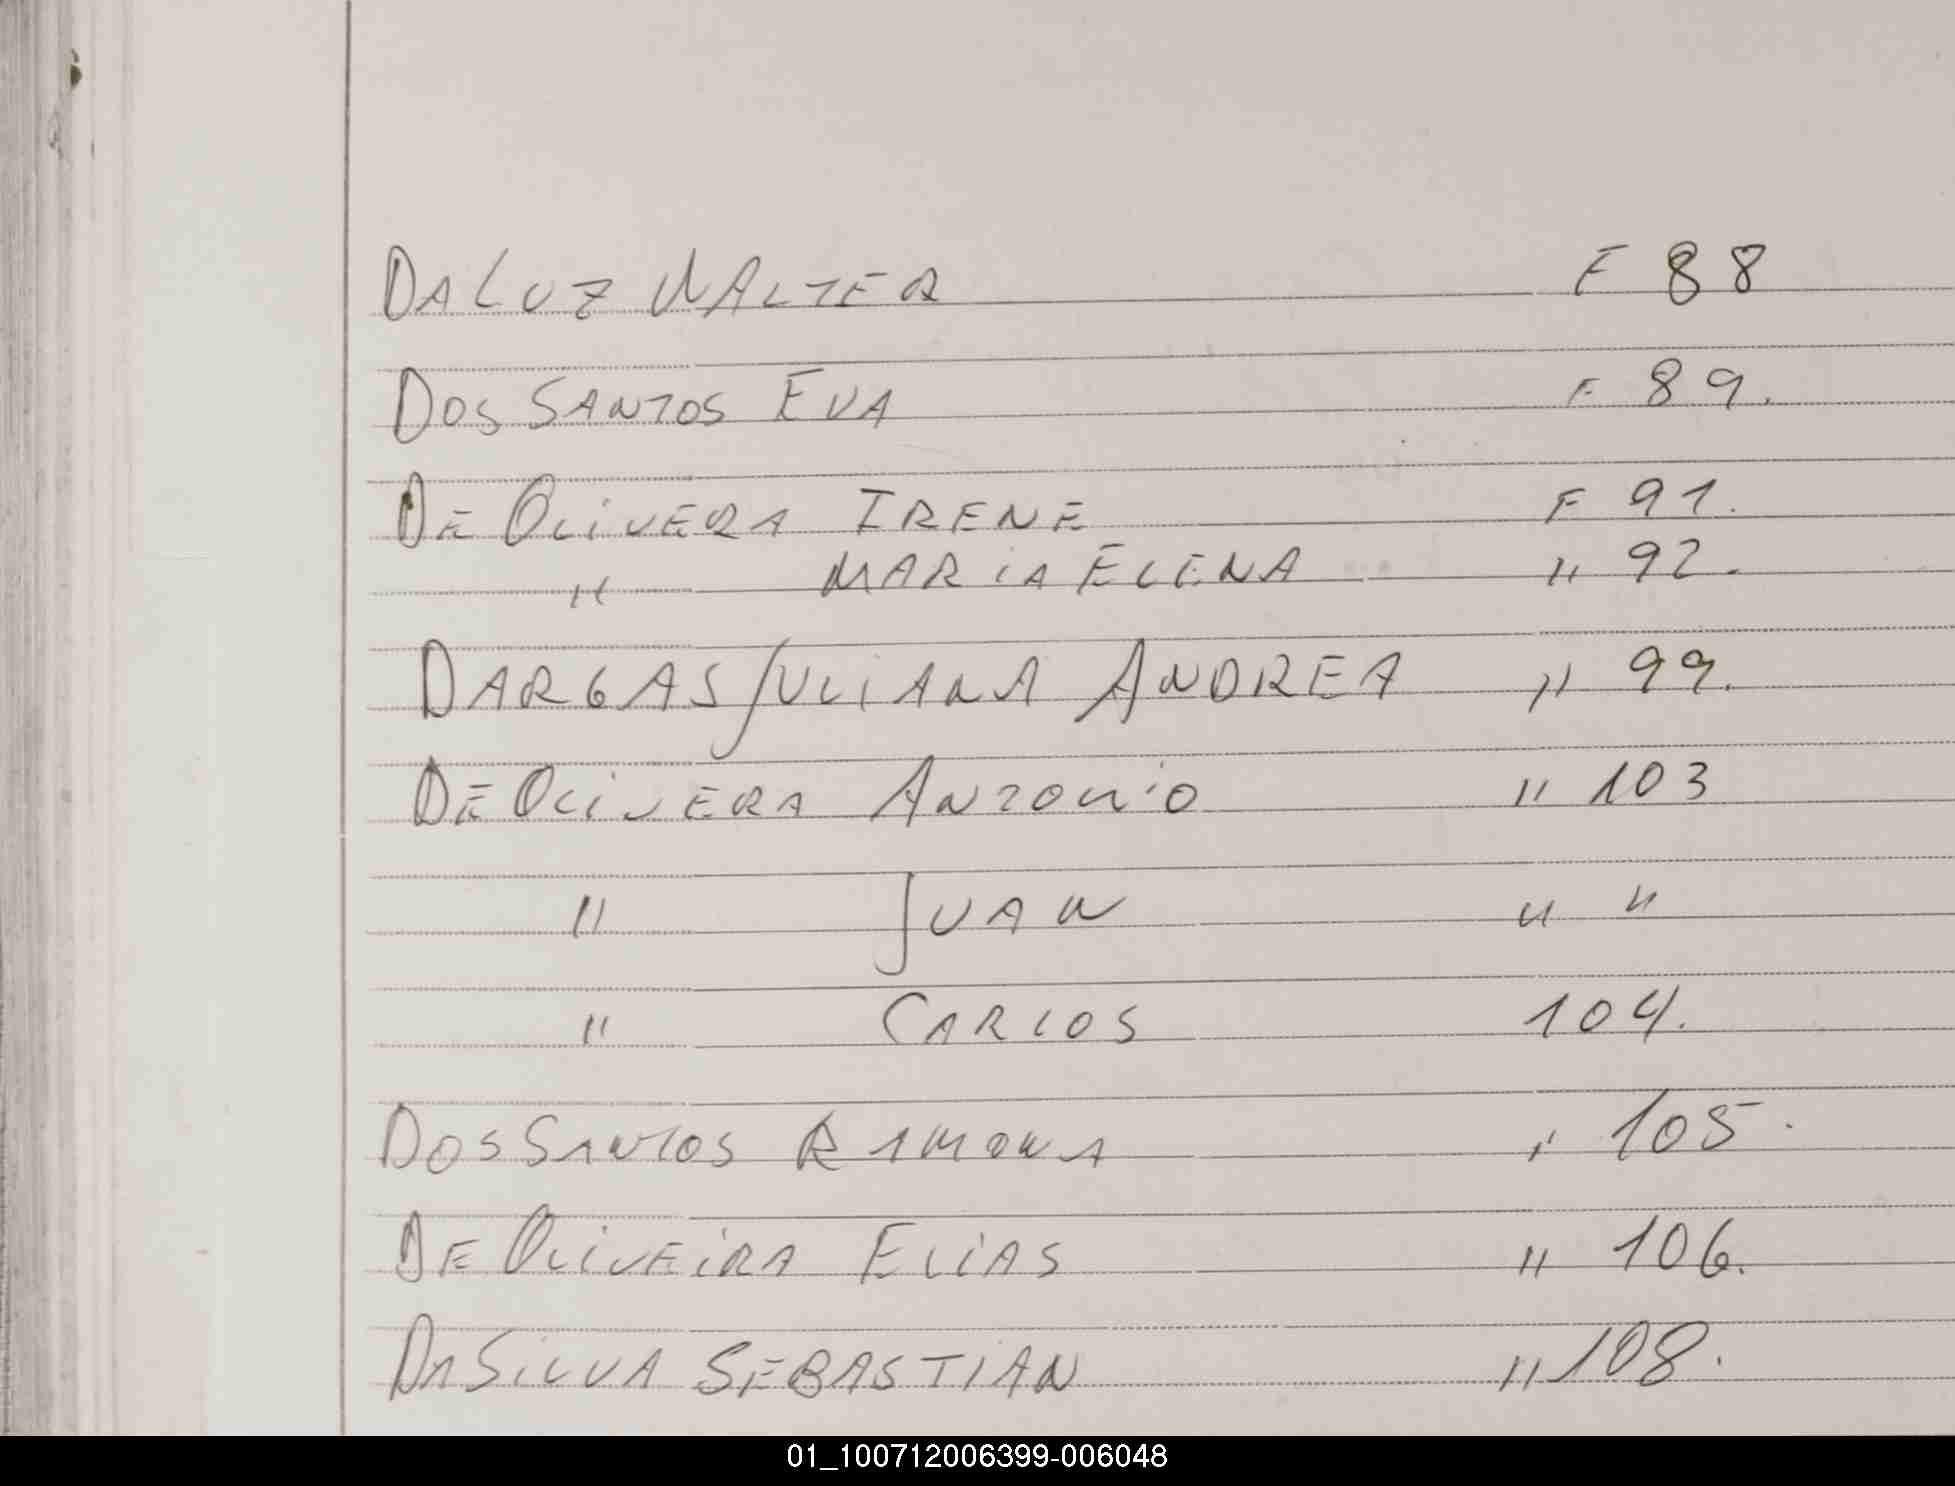 DA LUZ WALTER F 88
DOS SANTOS EVA F 89.
DE OLIVERA IRENE F 91.
" MARIA ELENA " 92.
DARGAS JULIANA ANDREA " 99.
DE OLIVERA ANTONIO " 103
" JUAN " "
" CARLOS 104.
DOS SANTOS RAMONA " 105.
DE OLIVEIRA ELIAS " 106.
DA SILVA SEBASTIAN " 108.
01_100712006399-006048